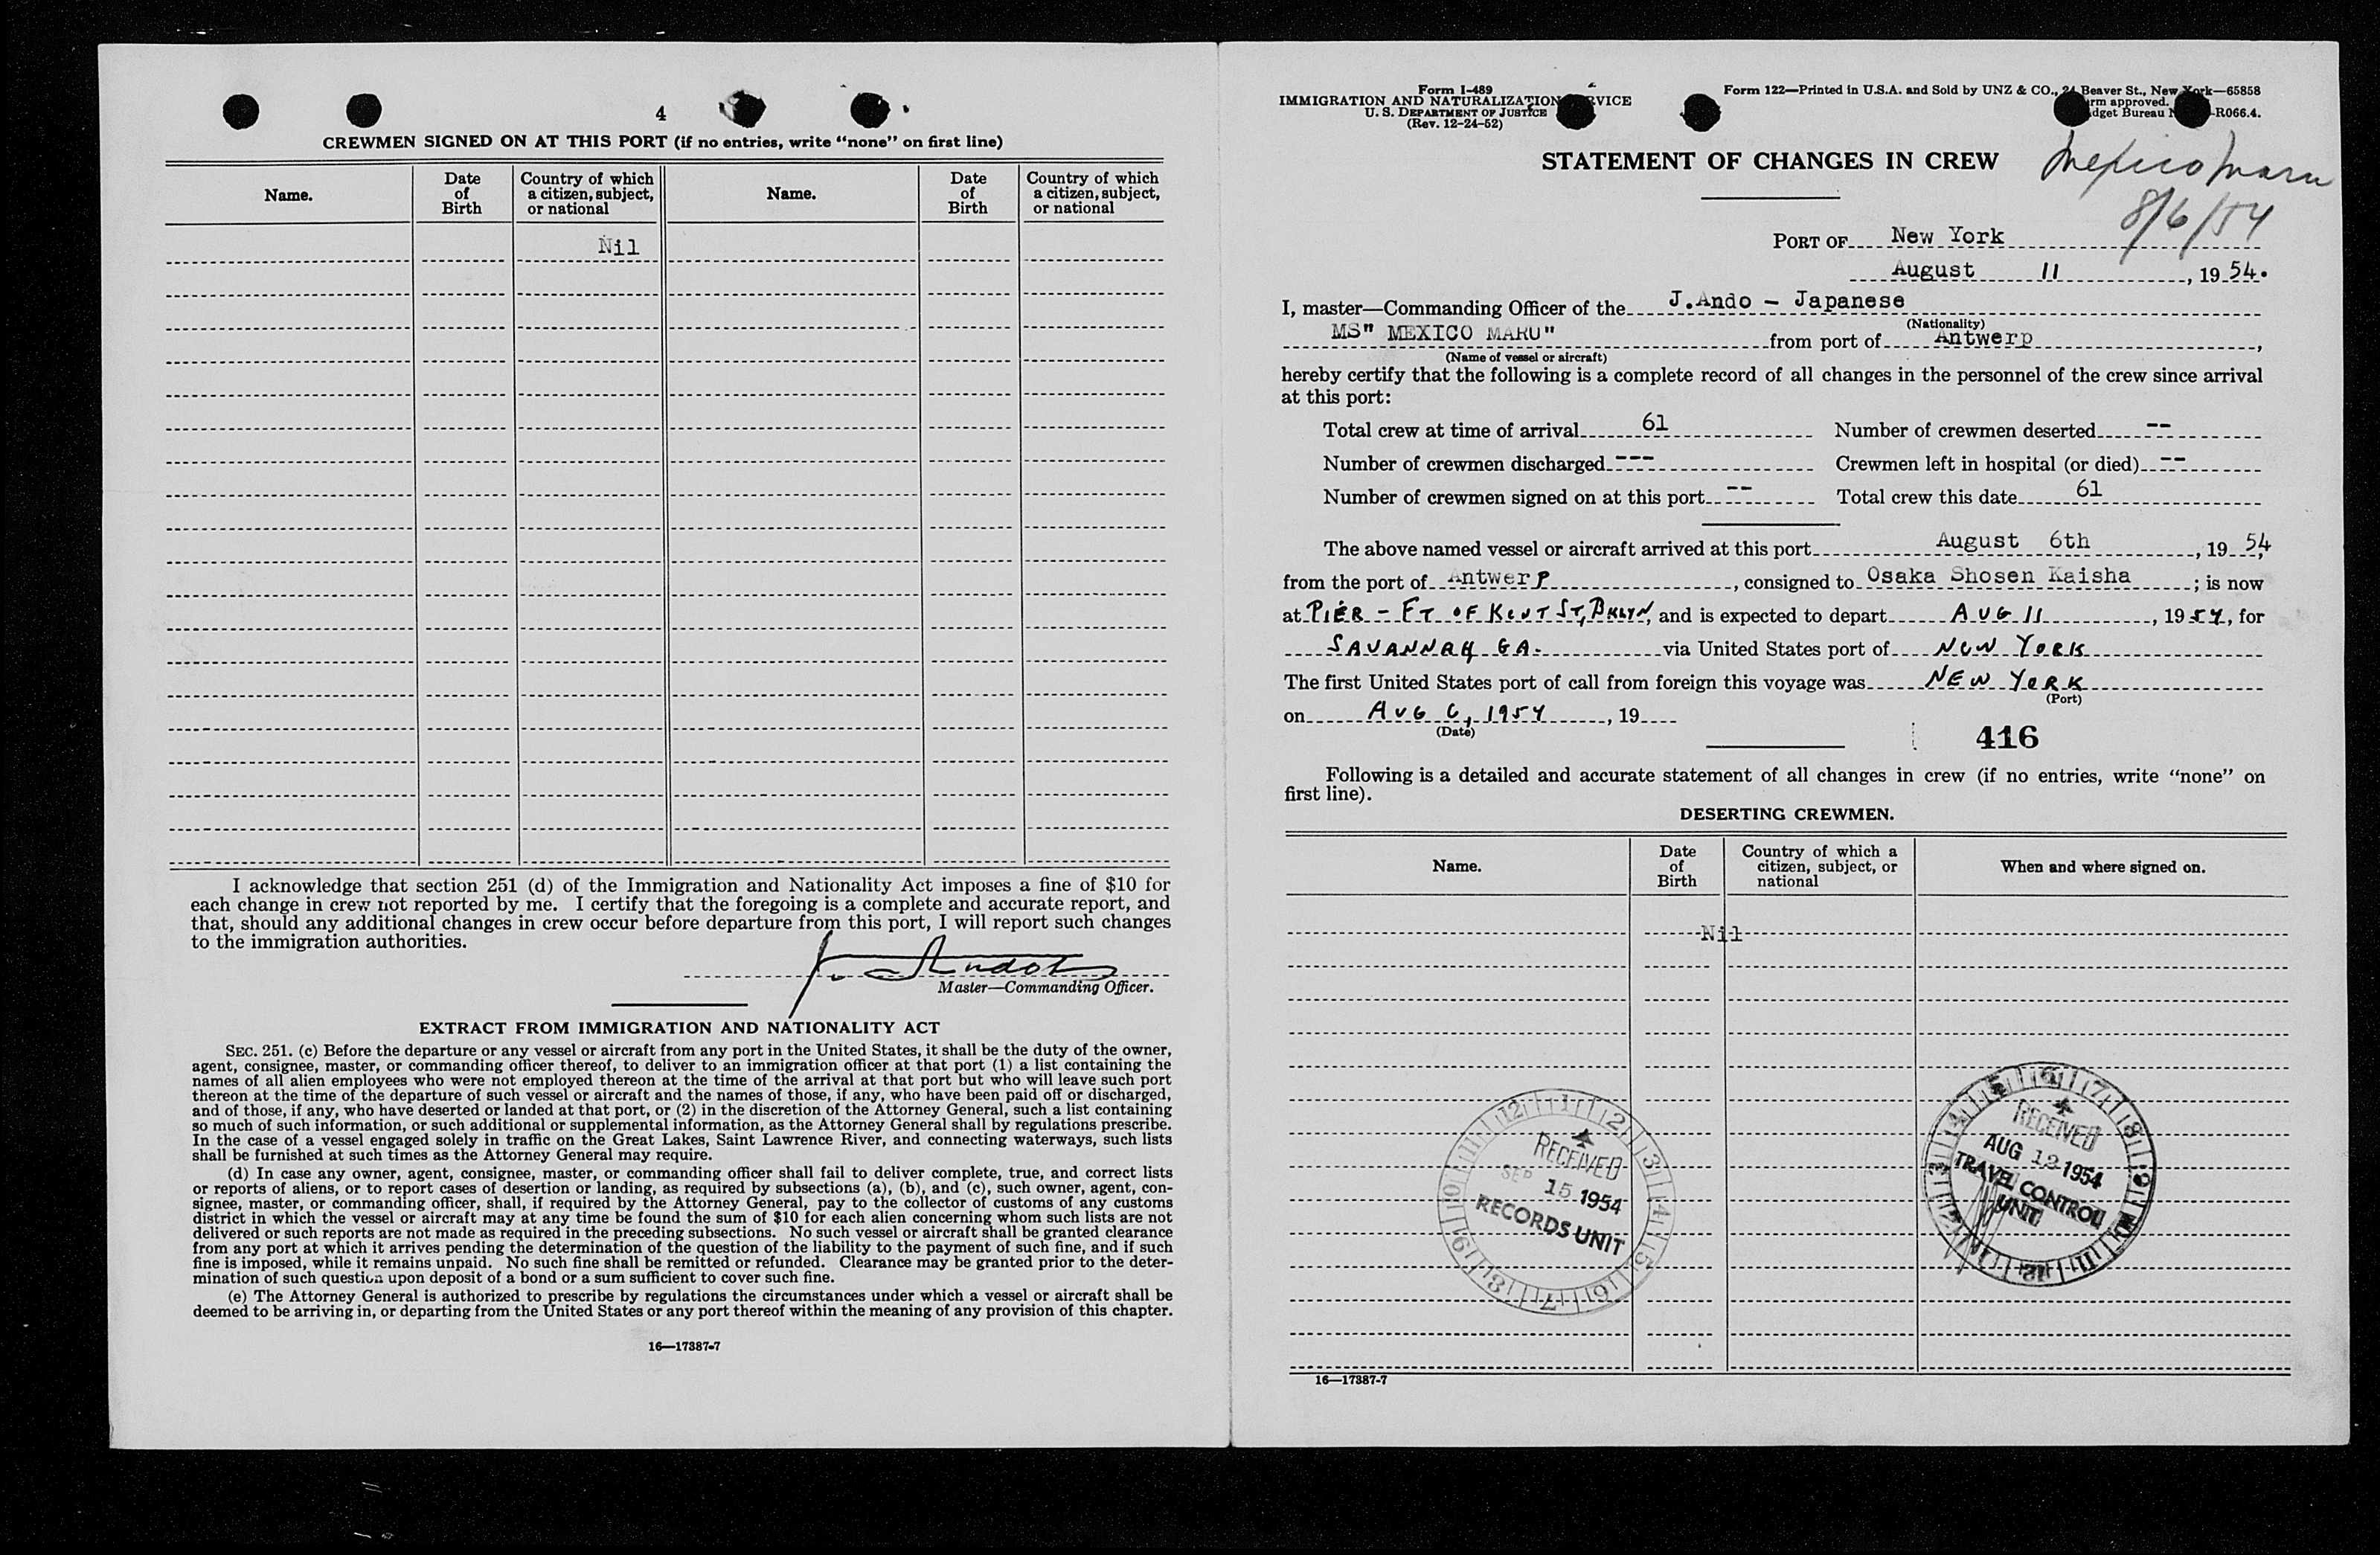 4
CREWMEN SIGNED ON AT THIS PORT (if no entries, write "none" on first line)
Name. Date of Birth Country of which a citizen, subject, or national Name. Date of Birth Country of which a citizen, subject, or national
Nil
I acknowledge that section 251 (d) of the Immigration and Nationality Act imposes a fine of $10 for
each change in crew not reported by me. I certify that the foregoing is a complete and accurate report, and
that, should any additional changes in crew occur before departure from this port, I will report such changes
to the immigration authorities.
J. Ando
Master—Commanding Officer.
EXTRACT FROM IMMIGRATION AND NATIONALITY ACT
SEC. 251. (c) Before the departure or any vessel or aircraft from any port in the United States, it shall be the duty of the owner,
agent, consignee, master, or commanding officer thereof, to deliver to an immigration officer at that port (1) a list containing the
names of all alien employees who were not employed thereon at the time of the arrival at that port but who will leave such port
thereon at the time of the departure of such vessel or aircraft and the names of those, if any, who have been paid off or discharged,
and of those, if any, who have deserted or landed at that port, or (2) in the discretion of the Attorney General, such a list containing
so much of such information, or such additional or supplemental information, as the Attorney General shall by regulations prescribe.
In the case of a vessel engaged solely in traffic on the Great Lakes, Saint Lawrence River, and connecting waterways, such lists
shall be furnished at such times as the Attorney General may require.
(d) In case any owner, agent, consignee, master, or commanding officer shall fail to deliver complete, true, and correct lists
or reports of aliens, or to report cases of desertion or landing, as required by subsections (a), (b), and (c), such owner, agent, con-
signee, master, or commanding officer, shall, if required by the Attorney General, pay to the collector of customs of any customs
district in which the vessel or aircraft may at any time be found the sum of $10 for each alien concerning whom such lists are not
delivered or such reports are not made as required in the preceding subsections. No such vessel or aircraft shall be granted clearance
from any port at which it arrives pending the determination of the question of the liability to the payment of such fine, and if such
fine is imposed, while it remains unpaid. No such fine shall be remitted or refunded. Clearance may be granted prior to the deter-
mination of such question upon deposit of a bond or a sum sufficient to cover such fine.
(e) The Attorney General is authorized to prescribe by regulations the circumstances under which a vessel or aircraft shall be
deemed to be arriving in, or departing from the United States or any port thereof within the meaning of any provision of this chapter.
16—17387-7
Form I-489
IMMIGRATION AND NATURALIZATION VICE
U. S. DEPARTMENT OF JUSTICE
(Rev. 12-24-52)
Form 122—Printed in U.S.A. and Sold by UNZ & CO., 24 Beaver St., New York—65858
rm approved.
dget Bureau -R066.4.
STATEMENT OF CHANGES IN CREW
Mexico Maru
8/6/54
PORT OF New York
August 11, 19 54.
I, master—Commanding Officer of the J.Ando - Japanese
(Nationality)
MS" MEXICO MARU" from port of Antwerp,
(Name of vessel or aircraft)
hereby certify that the following is a complete record of all changes in the personnel of the crew since arrival
at this port:
Total crew at time of arrival 61 Number of crewmen deserted --
Number of crewmen discharged --- Crewmen left in hospital (or died) --
Number of crewmen signed on at this port -- Total crew this date 61
The above named vessel or aircraft arrived at this port August 6th, 19 54,
from the port of Antwerp, consigned to Osaka Shosen Kaisha; is now
at PIER - FT OF KENT ST, BKLYN, and is expected to depart AUG 11, 1954, for
SAVANNAH GA. via United States port of NEW YORK
The first United States port of call from foreign this voyage was NEW YORK
(Port)
on AUG 6, 1954, 19
(Date)
416
Following is a detailed and accurate statement of all changes in crew (if no entries, write "none" on
first line).
DESERTING CREWMEN.
Name. Date of Birth Country of which a citizen, subject, or national When and where signed on.
Nil
RECEIVED
SEP 15 1954
RECORDS UNIT
RECEIVED
AUG 12 1954
TRAVEL CONTROL
UNIT
16—17387-7